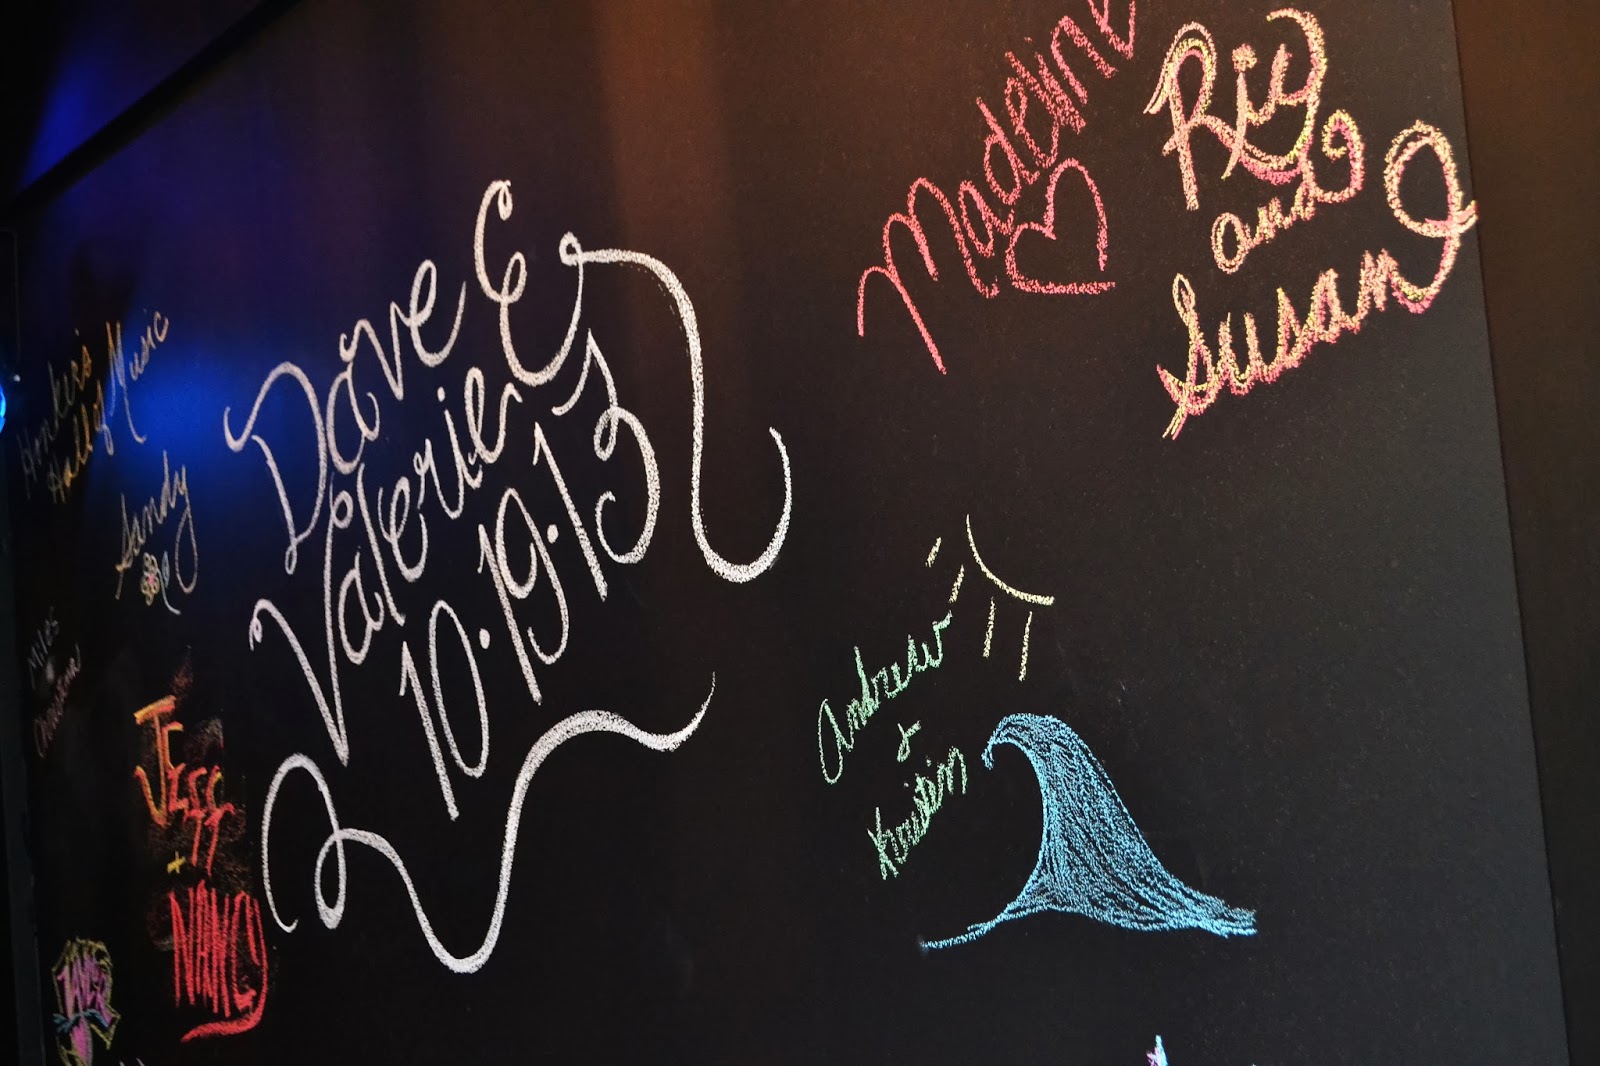 Honker's
Hall of Music
Sandy
Miles
Christine
Jess
+
NANCY
Dave &
Valerie
10.19.13
Madeline
Ric
and
Susan
Andrew
&
Kristin